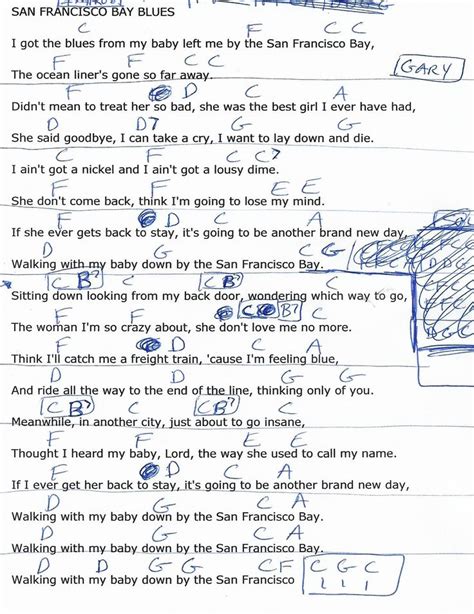 SAN FRANCISCO BAY BLUES
C F C C
I got the blues from my baby left me by the San Francisco Bay,
F F C C
GARY
The ocean liner's gone so far away.
F D C A
Didn't mean to treat her so bad, she was the best girl I ever have had,
D D7 G G
She said goodbye, I can take a cry, I want to lay down and die.
C F C C7
I ain't got a nickel and I ain't got a lousy dime.
F F E E
She don't come back, think I'm going to lose my mind.
F D C A
If she ever gets back to stay, it's going to be another brand new day,
D G C G
Walking with my baby down by the San Francisco Bay.
C B7 C B7
Sitting down looking from my back door, wondering which way to go,
F F C B7
The woman I'm so crazy about, she don't love me no more.
F D C A
Think I'll catch me a freight train, 'cause I'm feeling blue,
D D G G
And ride all the way to the end of the line, thinking only of you.
C B7 C B7 C
Meanwhile, in another city, just about to go insane,
F F E E
Thought I heard my baby, Lord, the way she used to call my name.
F D C A
If I ever get her back to stay, it's going to be another brand new day,
D G C A
Walking with my baby down by the San Francisco Bay.
D G C A
Walking with my baby down by the San Francisco Bay.
D D G G C F C G C
1 1 1
Walking with my baby down by the San Francisco